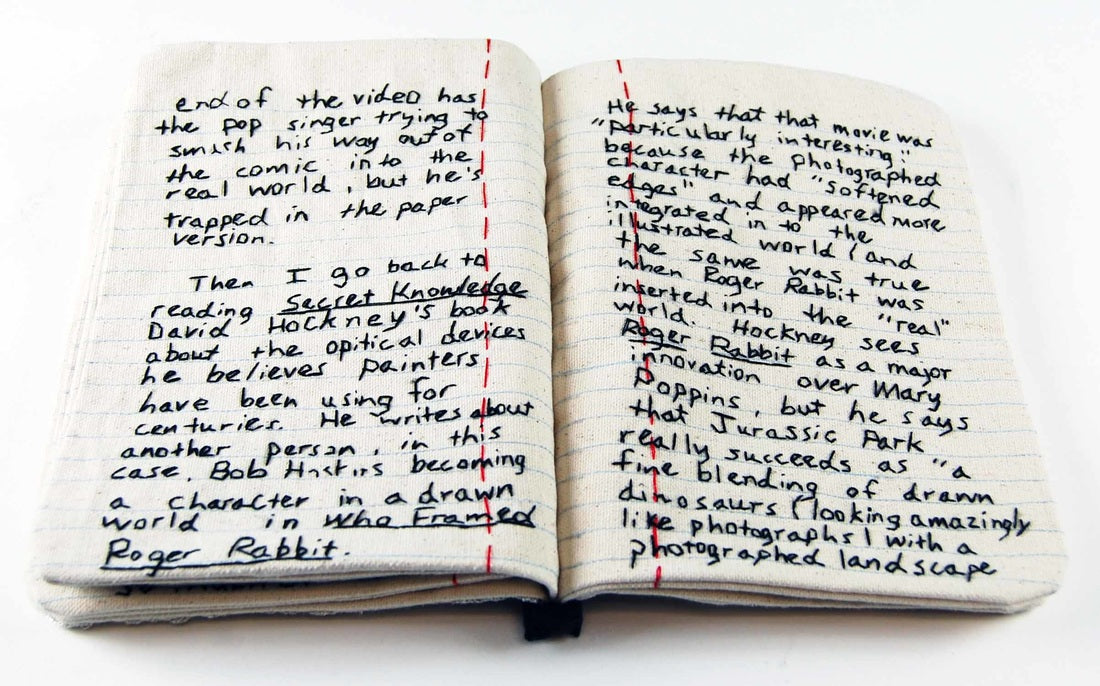 end of the video has
the pop singer trying to
smash his way out of
the comic in to the
real world, but he's
trapped in the paper
version.
Then I go back to
reading Secret Knowledge
David Hockney's book
about the opitical devices
he believes painters
have been using for
centuries. He writes about
another person, in this
case, Bob Hoskins becoming
a character in a drawn
world in Who Framed
Roger Rabbit.
He says that that movie was
"particularly interesting"
because the photographed
character had "softened
edges" and appeared more
integrated in to the
illustrated world (and
the same was true
when Roger Rabbit was
inserted into the "real"
world. Hockney sees
Roger Rabbit as a major
innovation over Mary
Poppins, but he says
that Jurassic Park
really succeeds as "a
fine blending of drawn
dinosaurs (looking amazingly
like photographs) with a
photographed landscape